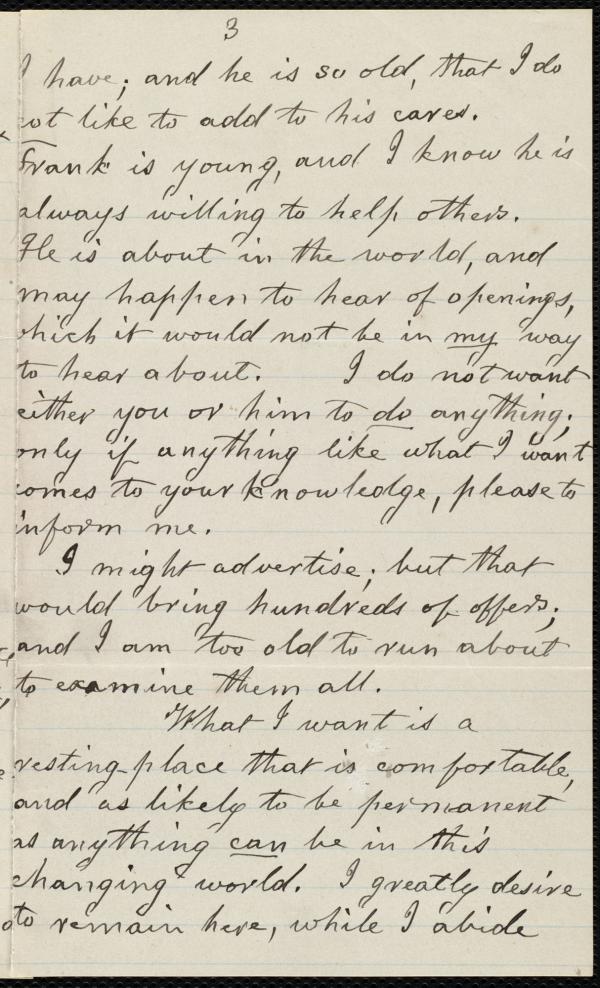 3
I have; and he is so old, that I do
not like to add to his cares.
Frank is young, and I know he is
always willing to help others.
He is about in the world, and
may happen to hear of openings,
which it would not be in my way
to hear about. I do not want
either you or him to do anything;
only if anything like what I want
comes to your knowledge, please to
inform me.
I might advertise; but that
would bring hundreds of offers;
and I am too old to run about
to examine them all.
What I want is a
resting-place that is comfortable,
and as likely to be permanent
as anything can be in this
changing world. I greatly desire
to remain here, while I abide